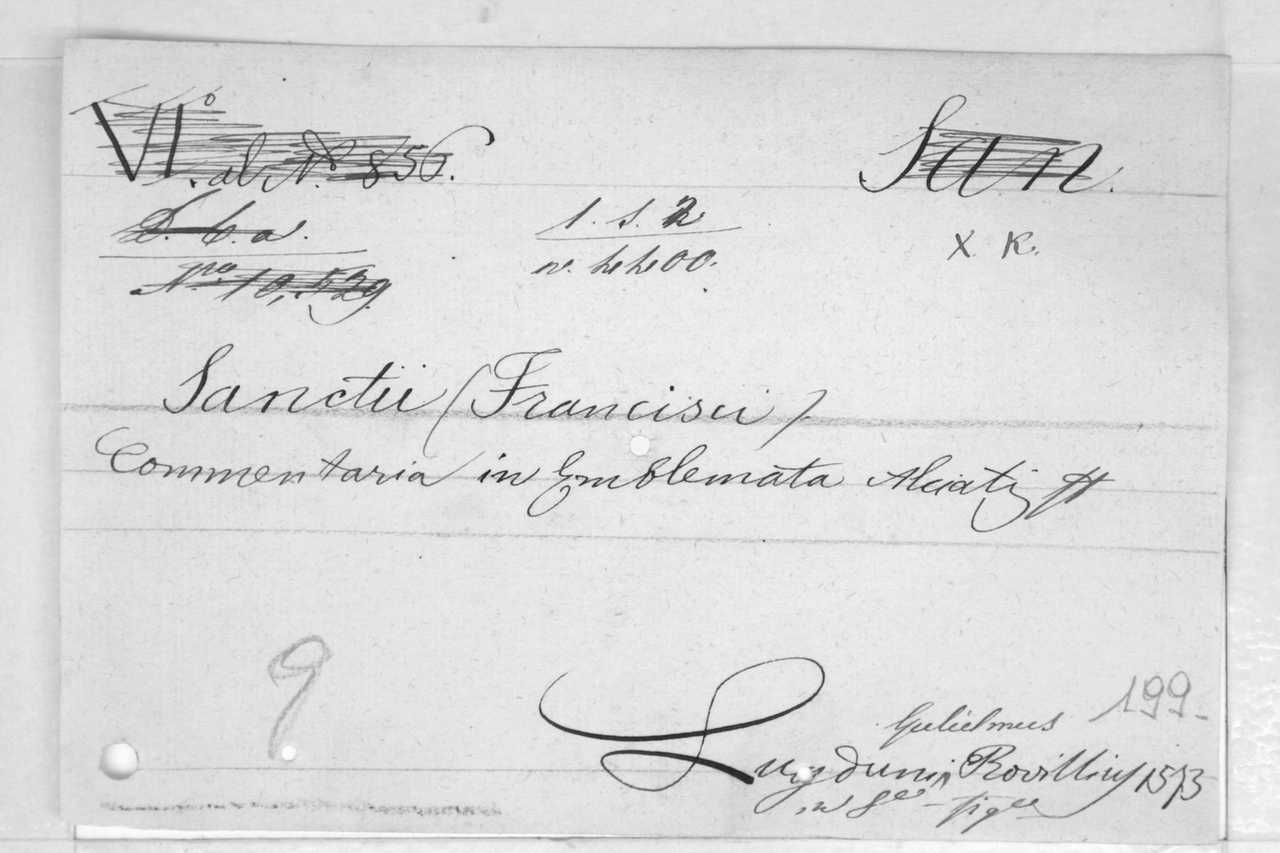 VI.° al N.° 856.
San.
D. b. a.
1. s. 2
X K.
N.ro 10,529
n. 4400.
Sanctii (Francisci)
Commentaria in Emblemata Alciati
9
199-
Gulielmus
Lugduni Rovillius 1573
in 8.vo fig.